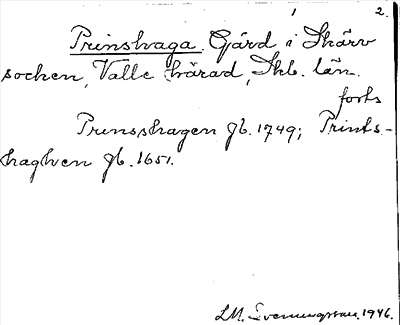 1 2.
Prinshaga Gård i Skärv
socken, Valle härad, Skb. län.
forts
Prinsshagen Jb. 1749; Prints-
haghen Jb. 1651.
L.M. Svenungsson 1946.